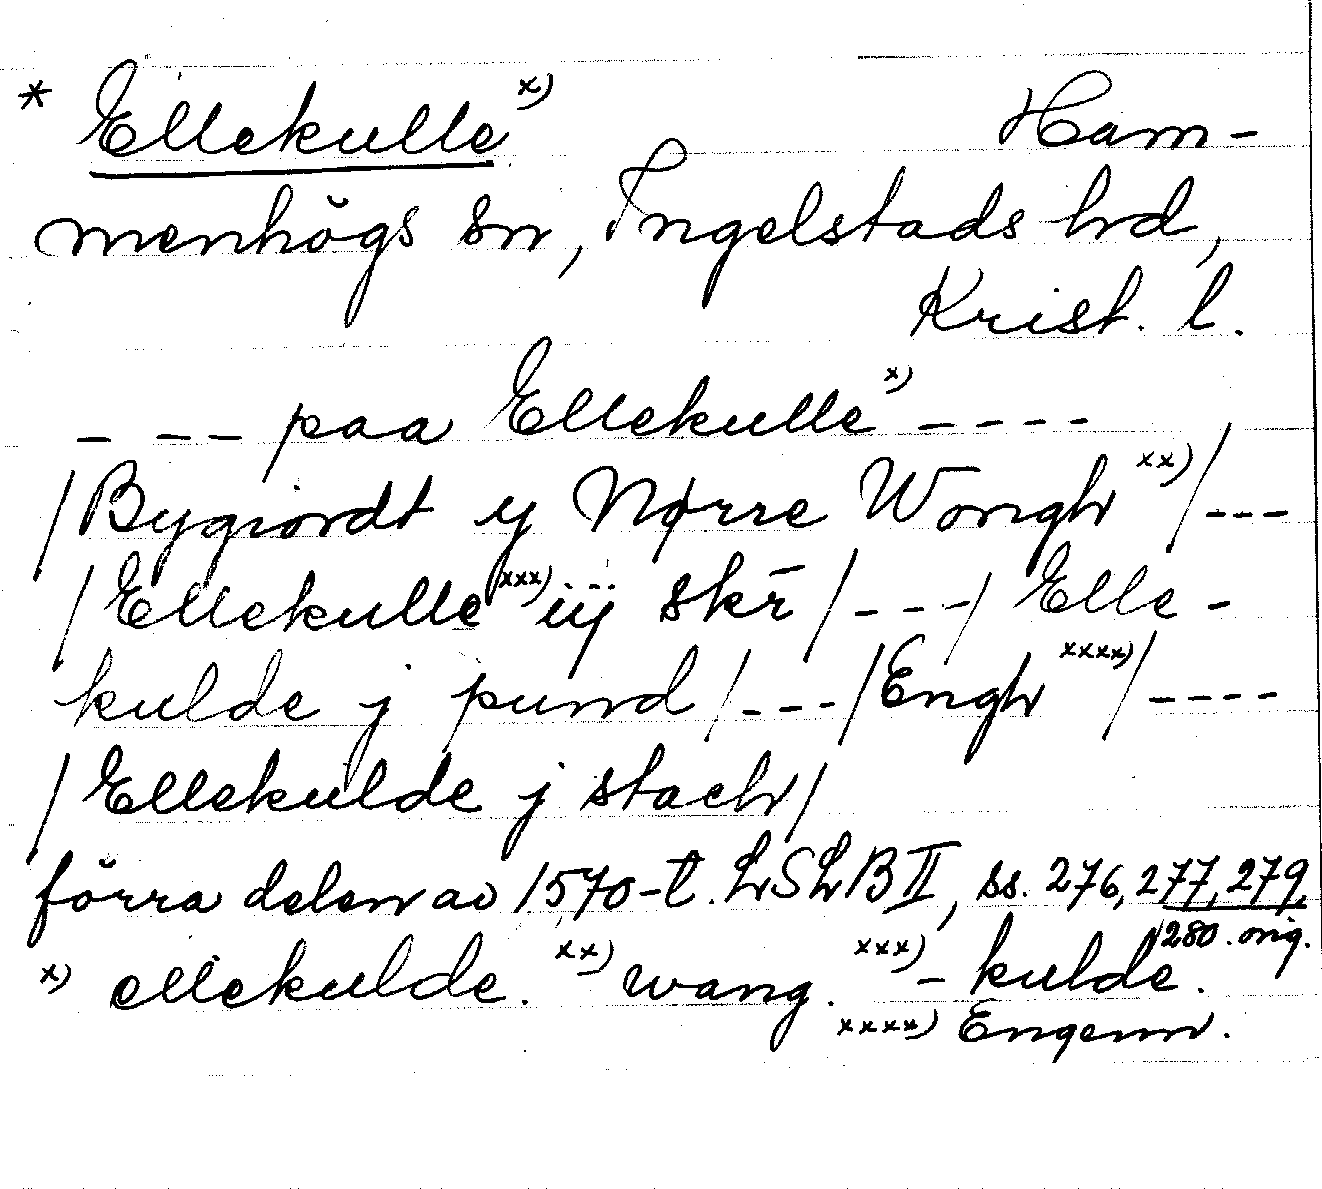 * Ellekulle x) Ham-
menhögs sn, Ingelstads hd,
Krist. l.
- -- paa Ellekulle x) ----
/Bygiordt y Nørre Wongh xx)/---
/Ellekulle xxx) iij skr̄/---/Elle-
kulde j pund/---/Engh xxxx)/----
/Ellekulde j stach/
förra delen av 1570-t. LSLB II, ss. 276, 277, 279,
280. orig.
x) ellekulde. xx) wang. xxx) -kulde.
xxxx) Engenn.